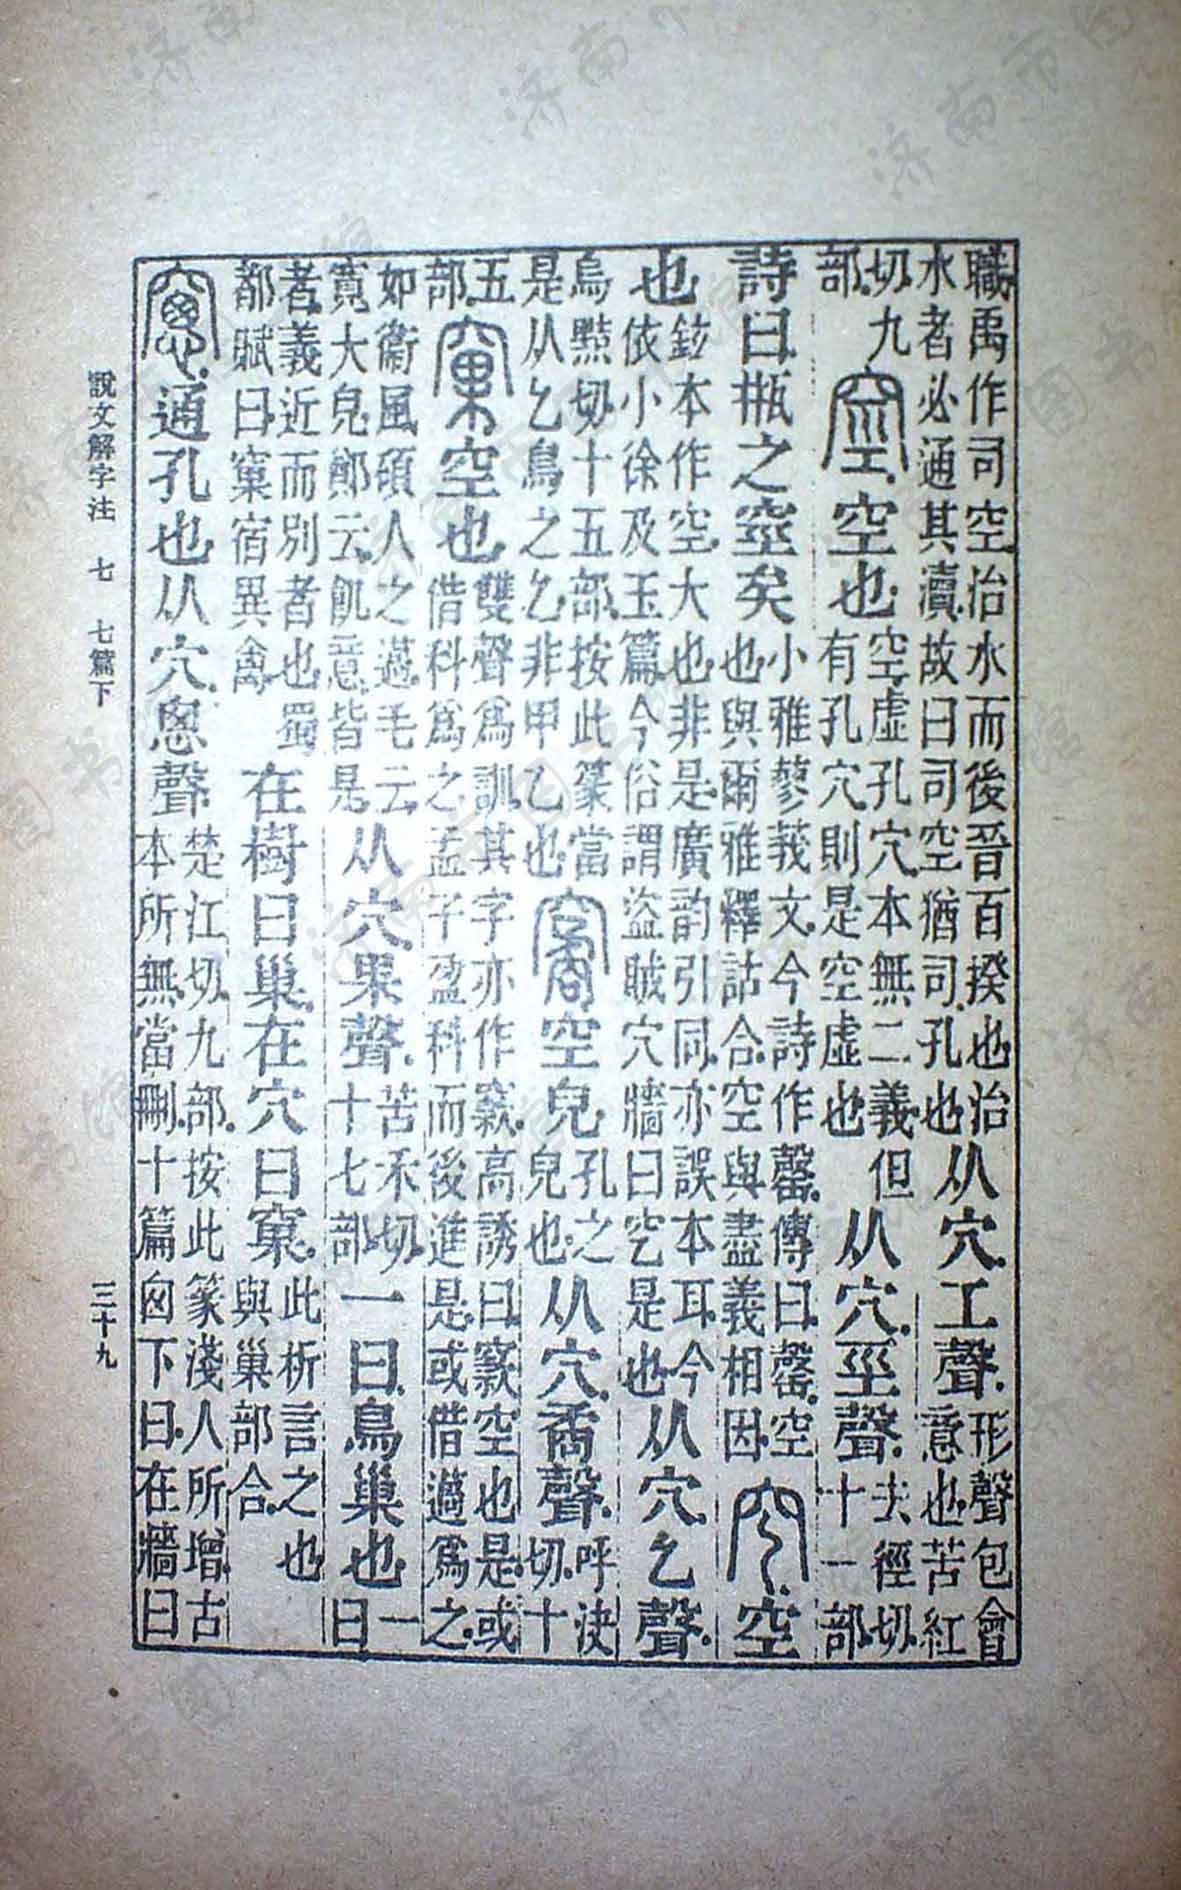 職禹作司空治水而後晉百揆也治水者必通其瀆故曰司空猶司孔也从穴工聲形聲包會意也苦紅
切九部䆪空也空虛孔穴本無二義但有孔穴則是空虛也从穴巠聲去徑切十一部
詩曰瓶之䆪矣小雅蓼莪文今詩作罄傳曰罄空也與爾雅釋詁合空與盡義相因穵空
也鉉本作空大也非是廣韵引同亦誤本耳今依小徐及玉篇今俗謂盜賊穴牆曰穵是也从穴乞聲
烏黠切十五部按此篆當是从乞鳥之乞非甲乙也䆷空皃孔之皃也从穴矞聲呼決切十
五部窠空也雙聲爲訓其字亦作窾高誘曰窾空也是或借科爲之孟子盈科而後進是或借薖爲之
如衞風碩人之薖毛云寬大皃鄭云飢意皆是从穴果聲苦禾切十七部一曰鳥巢也一曰
者義近而別者也蜀都賦曰窠宿異禽在樹曰巢在穴曰窠此析言之也與巢部合
窻通孔也从穴悤聲楚江切九部按此篆淺人所增古本所無當刪十篇囱下曰在牆曰
說文解字注 七 七篇下 三十九
济南市图书馆